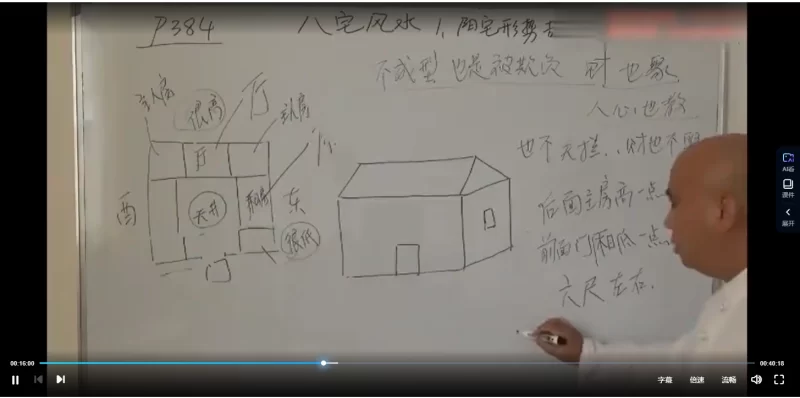 P384 八宅风水 1、阳宅形势吉
不成型 也是被欺负 财也聚
人心也散
也不无挡、财也不
后面主房高一点
前面门厢低一点
六尺左右.
主人房
很高
厅
主人房
厅
酉
天井
厨房
东
很低
门
AI看
课件
展开
00:16:00
00:40:18
字幕 倍速 流畅